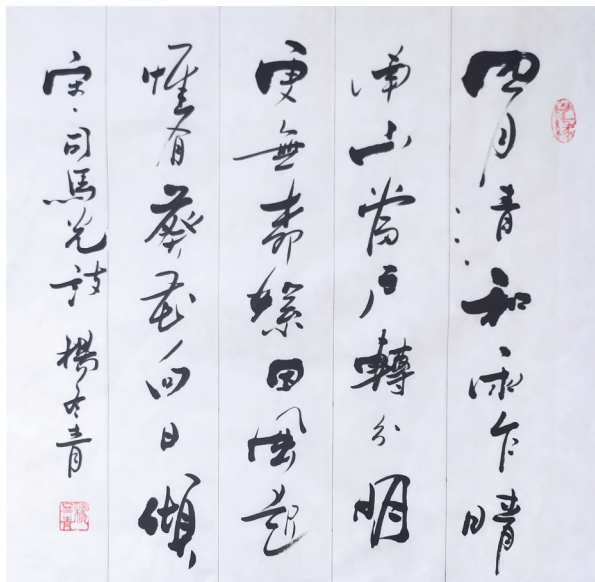 四月清和雨乍晴
南山當戶轉分明
更無柳絮因風起
惟有葵花向日傾
宋·司馬光詩 楊冬青